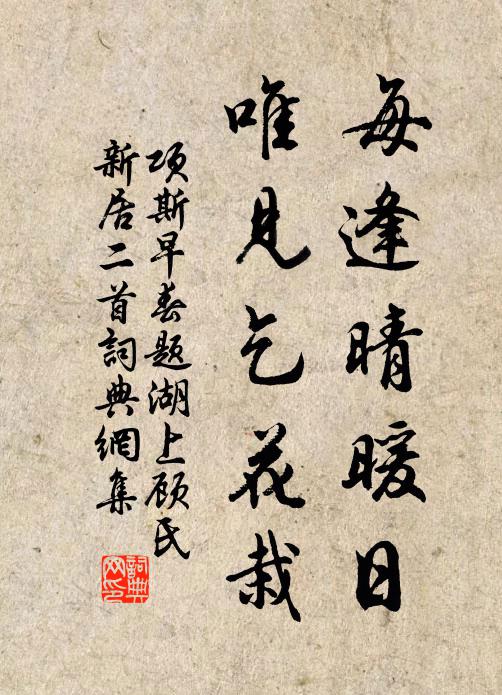 每逢晴暖日
唯見乞花栽
項斯早春題湖上顧氏
新居二首詞典網集
詞典
网印